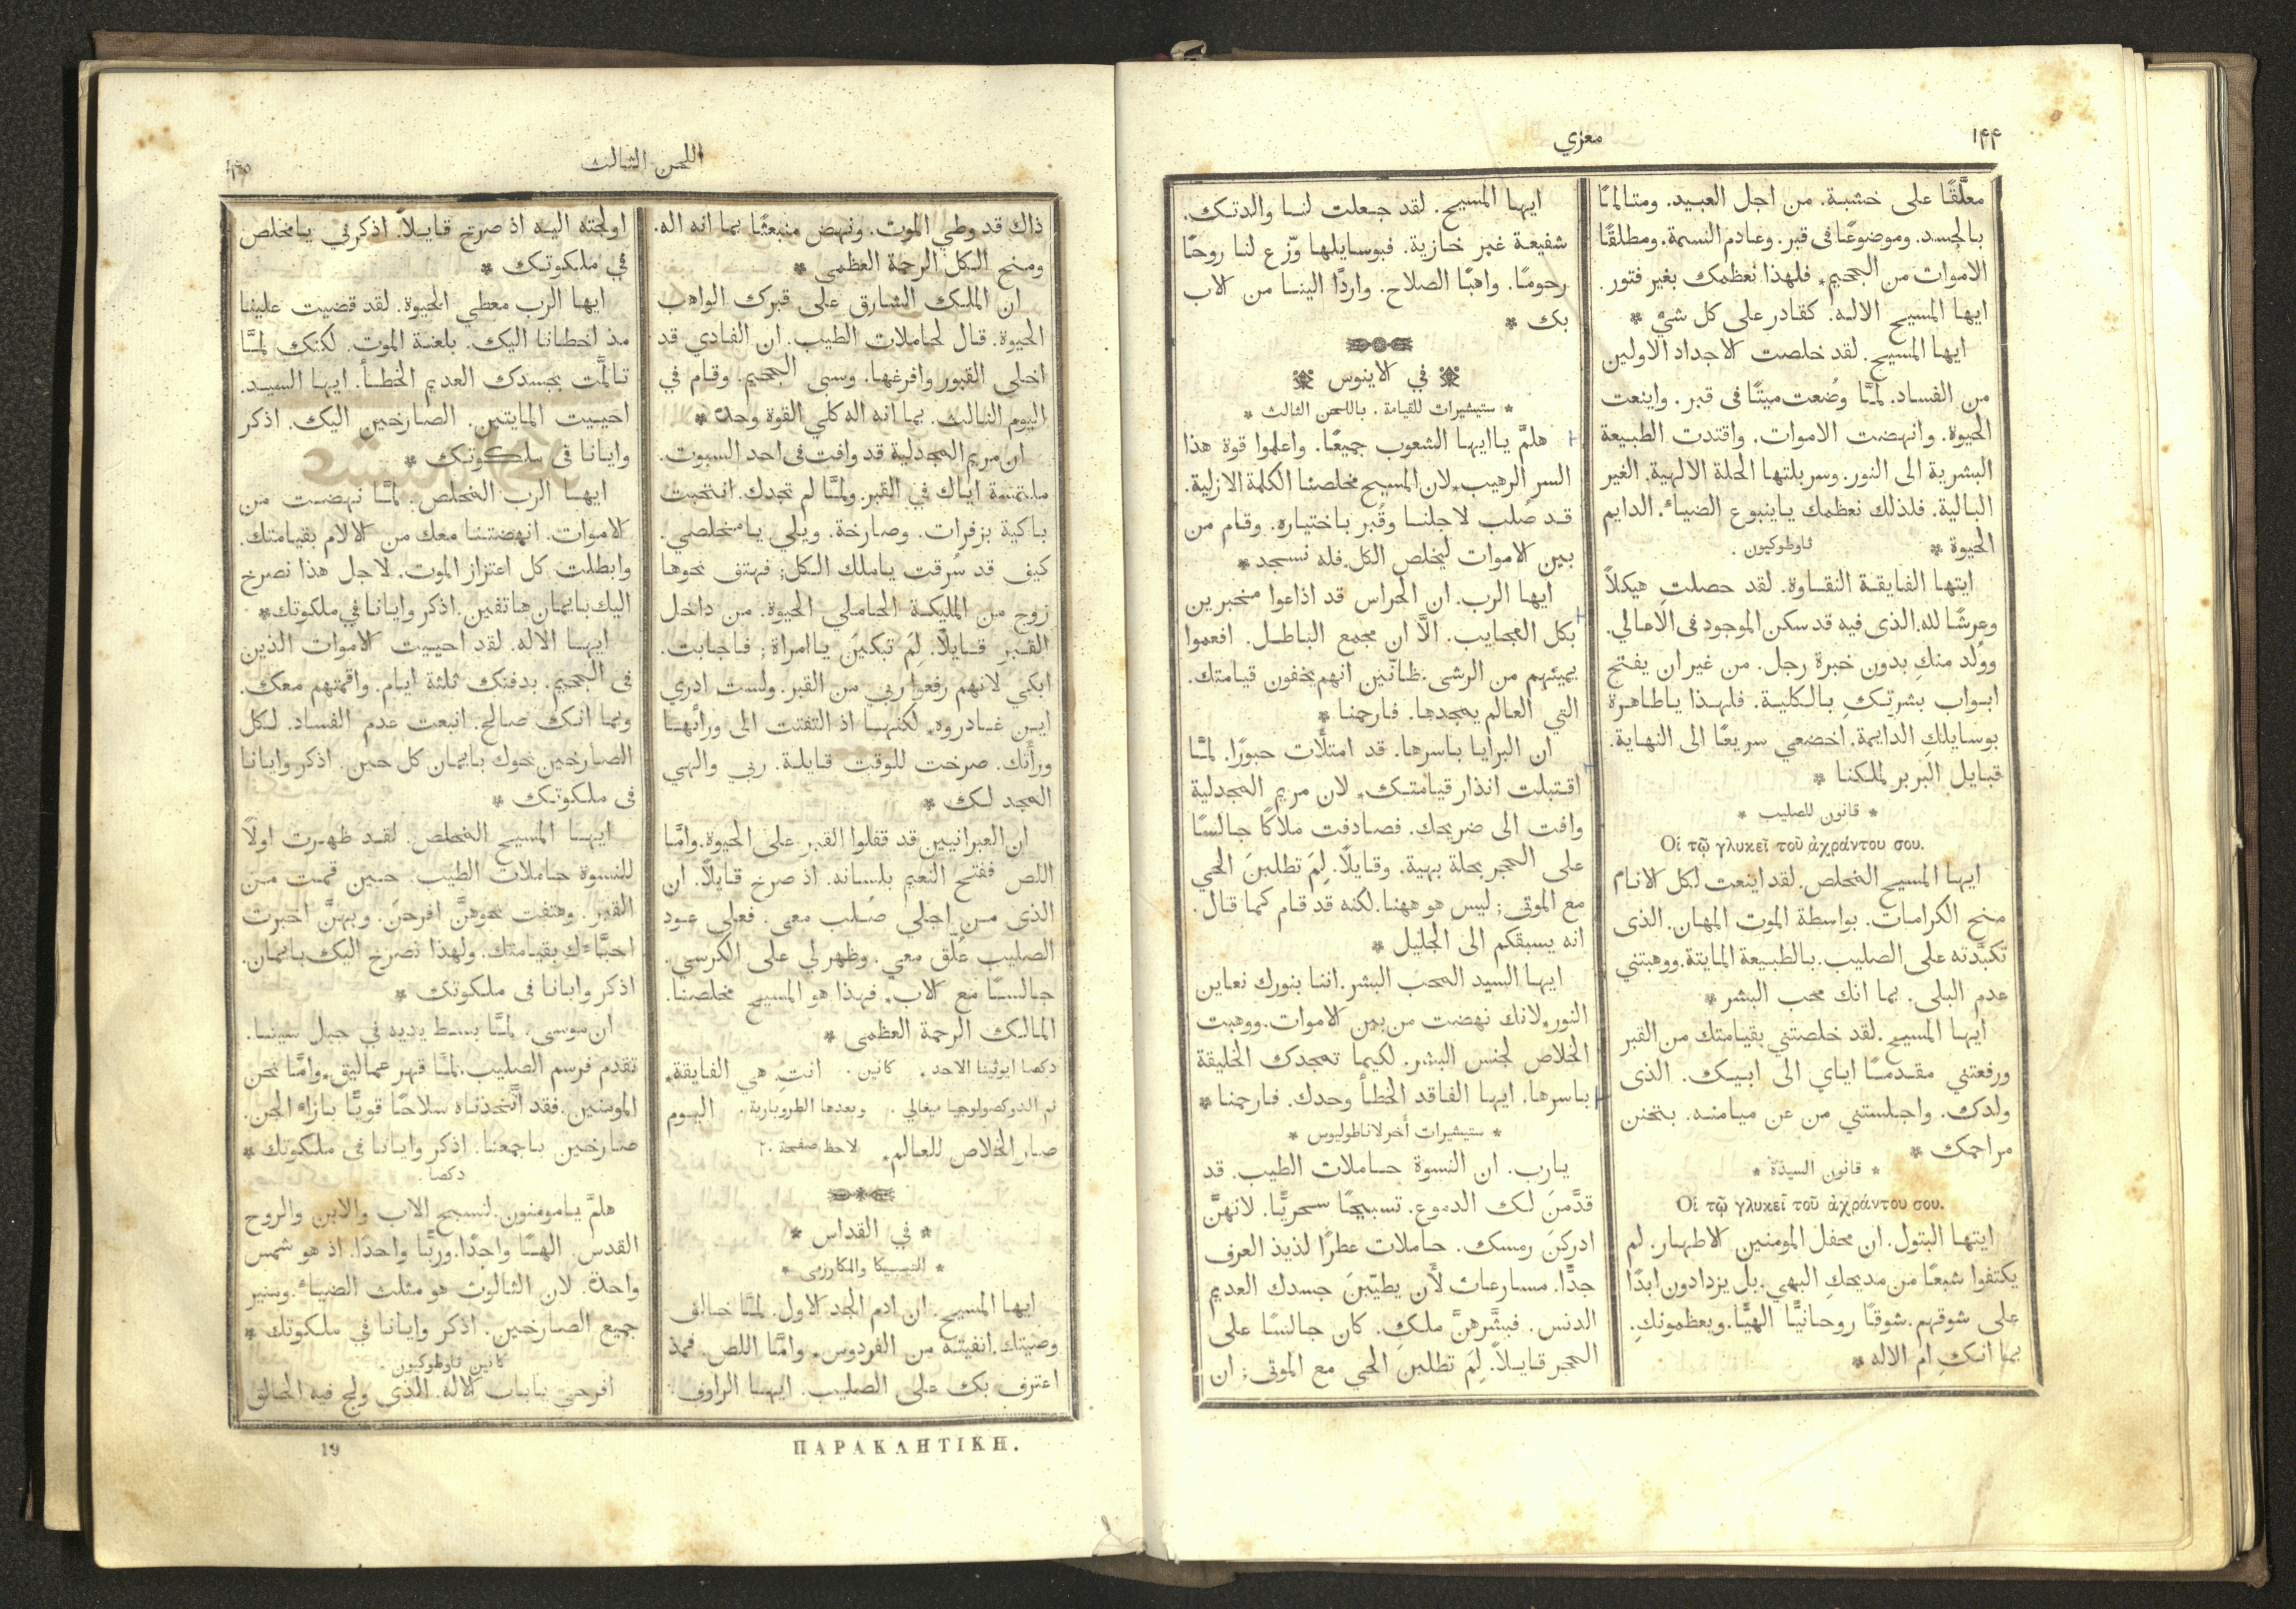 ١٤٤
معزي
معلَّقًا على خشبة. من اجل العبيد. ومتالمًا
بالجسد. وموضوعًا فى قبر. وعادم النسمة. ومطلقًا
الاموات من الجحيم. فلهذا نعظمك بغير فتور.
ايها المسيح الاله. كقادر على كل شيْ *
ايها المسيح. لقد خلصت الاجداد الاولين
من الفساد. لمَّا وُضعت ميتًا فى قبر. واينعت
الحيوة. وانهضت الاموات. واقتدت الطبيعة
البشرية الى النور. وسربلتها الحلة الالهية. الغير
البالية. فلذلك نعظمك ياينبوع الضياءْ. الدايم
الحيوة * ثاوطوكيون.
ايتها الفايقة النقاوة. لقد حصلتِ هيكلاً
وعرشًا لله. الذى فيه قد سكن الموجود فى الاعالي.
ووُلد منكِ بدون خبرة رجل. من غير ان يفتح
ابواب بشرتِكِ بالكلية. فلهذا ياطاهرة
بوسايلكِ الدايمة. اخضعي سريعًا الى النهاية.
قبايل البربر لملكنا *
* قانون للصليب *
Οἱ τῷ γλυκεῖ τοῦ ἀχράντου σου.
ايها المسيح المخلص. لقد اينعت لكل الانام
منح الكرامات. بواسطة الموت المهان. الذى
تكبَّدته على الصليب. بالطبيعة المايتة. ووهبتني
عدم البلى. بما انك محب البشر *
ايها المسيح. لقد خلصتني بقيامتك من القبر
ورفعتني مقدمًا اياي الى ابيك. الذى
ولدك. واجلستني من عن ميامنه. بتحنن
مراحمك *
* قانون السيدة *
Οἱ τῷ γλυκεῖ τοῦ ἀχράντου σου.
ايتها البتول. ان محفل المومنين الاطهار. لم
يكتفوا شبعًا من مديحكِ البهي. بل يزدادون ابدًا
على شوقهم. شوقًا روحانيًّا الهيًّا. ويعظمونكِ.
بما انكِ ام الاله *
ايها المسيح. لقد جعلت لنا والدتك.
شفيعة غير خازية. فبوسايلها وزّع لنا روحًا
رحومًا. واهبًا الصلاح. واردًّا الينا من الاب
بك *
في الاينوس
* ستيشيرات للقيامة. باللحن الثالث *
هلمَّ ياايها الشعوب جميعًا. واعلموا قوة هذا
السر الرهيب. لان المسيح مخلصنا الكلمة الازلية.
قد صُلب لاجلنا وقُبر باختياره. وقام من
بين الاموات ليخلص الكل. فله نسجد *
ايها الرب. ان الحراس قد اذاعوا مخبرين
بكل العجايب. الَّا ان مجمع الباطل. افعموا
يمينهم من الرشى. ظانّين انهم يخفون قيامتك.
التي العالم يمجدها. فارحمنا *
ان البرايا باسرها. قد امتلأت حبورًا. لمَّا
اقتبلت انذار قيامتك. لان مريم المجدلية
وافت الى ضريحك. فصادفت ملاكًا جالسًا
على الحجر بحلة بهية. وقايلًا. لِمَ تطلبنَ الحي
مع الموتى; ليس هو ههنا. لكنه قد قام كما قال.
انه يسبقكم الى الجليل *
ايها السيد المحب البشر. اننا بنورك نعاين
النور. لانك نهضت من بين الاموات. ووهبت
الخلاص لجنس البشر. لكيما تمجدك الخليقة
باسرها. ايها الفاقد الخطأ وحدك. فارحمنا *
* ستيشيرات أخر لاناطوليوس *
يارب. ان النسوة حاملات الطيب. قد
قدَّمنَ لك الدموع. تسبيحًا سحريًّا. لانهنَّ
ادركنَ رمسك. حاملات عطرًا لذيذ العرف
جدًّا. مسارعات لأن يطيّبنَ جسدك العديم
الدنس. فبشَّرهنَّ ملكٍ. كان جالسًا على
الحجر قايلاً. لِمَ تطلبن الحي مع الموتى; ان
اللحن الثالث
١٤٥
ذاك قد وطي الموت. ونهض منبعثًا بما انه اله.
ومنح الكل الرحمة العظمى *
ان الملك الشارق على قبرك الواهب
الحيوة. قال لحاملات الطيب. ان الفادي قد
اخلى القبور وافرغها. وسبى الجحيم. وقام في
اليوم الثالث. بما انه اله كلي القوة وحدهُ *
ان مريم المجدلية قد وافت فى احد السبوت.
ملتمسة اياك في القبر. ولمَّا لم تجدك. انتحبت
باكية بزفرات. وصارخة. ويلي يامخلصي.
كيف قد سُرقت ياملك الكل; فهتف نحوها
زوج من المليكة الحاملي الحيوة. من داخل
القبر قايلًا. لِمَ تبكينَ ياامراة; فاجابت.
ابكي لانهم رفعوا ربي من القبر. ولست ادري
اين غادروه. لكنها اذ التفتت الى ورائها
ورأتك. صرخت للوقت قايلة. ربي والهي
المجد لك *
ان العبرانيين قد قفلوا القبر على الحيوة. وامَّا
اللص ففتح النعيم بلسانه. اذ صرخ قايلًا. ان
الذى من اجلي صُلب معي. فعلى عود
الصليب عُلّق معي. وظهر لي على الكرسي.
جالسًا مع الاب. فهذا هو المسيح مخلصنا.
المالك الرحمة العظمى *
دكصا ايوثينا الاحد. كانين. انتِ هي الفايقة.
ثم الدوكصولوجيا ميغالي. وبعدها الطروبارية. اليوم
صار الخلاص للعالم. لاحظ صفحة ٢٠
* في القداس *
* التيبيكا والمكارزمى *
ايها المسيح. ان ادم الجد الاول. لمَّا خالف
وصيتك. انفيتهُ من الفردوس. وامَّا اللص. فمذ
اعترف بك على الصليب. ايها الراوف.
اولجته اليه اذ صرخ قايلاً. اذكرني يامخلص
في ملكوتك *
ايها الرب معطي الحيوة. لقد قضيت علينا
مذ اخطانا اليك. بلعنة الموت. لكنك لمَّا
تالمَّت بجسدك العديم الخطأ. ايها السيد.
احييت المايتين. الصارخين اليك. اذكر
وايانا فى ملكوتك *
ايها الرب المخلص. لمَّا نهضت من
الاموات. انهضتنا معك من الالام بقيامتك.
وابطلت كل اعتزاز الموت. لاجل هذا نصرخ
اليك بايمان هاتفين. اذكر وايانا في ملكوتك *
ايها الاله. لقد احييت الاموات الذين
فى الجحيم. بدفنك ثلثة ايام. واقمتهم معك.
وبما انك صالح. انبعت عدم الفساد. لكل
الصارخين نحوك بايمان كل حين. اذكر وايانا
فى ملكوتك *
ايها المسيح المخلص. لقد ظهرت اولاً
للنسوة حاملات الطيب. حين قمت من
القبر. وهتفت نحوهنَّ افرحنَ. وبهنَّ اخبرت
احبَّاءك بقيامتك. ولهذا نصرخ اليك بايمان.
اذكر وايانا فى ملكوتك *
ان موسى. لمَّا بسط يديه في جبل سينا.
تقدم فرسم الصليب. لمَّا قهر عماليق. وامَّا نحن
المومنين. فقد اتَّخذناه سلاحًا قويًّا بازاء الجن.
صارخين باجمعنا. اذكر وايانا فى ملكوتك *
دكصا.
هلمَّ يامومنون. لنسبح الاب والابن والروح
القدس. الهًا واحدًا. وربًّا واحدًا. اذ هو شمس
واحدة. لان الثالوث هو مثلث الضياءْ. ومنير
جميع الصارخين. اذكر وايانا في ملكوتك *
كانين ثاوطوكيون.
افرحي ياباب الاله. الذى ولج فيه الخالق
ΠΑΡΑΚΛΗΤΙΚΗ.
19